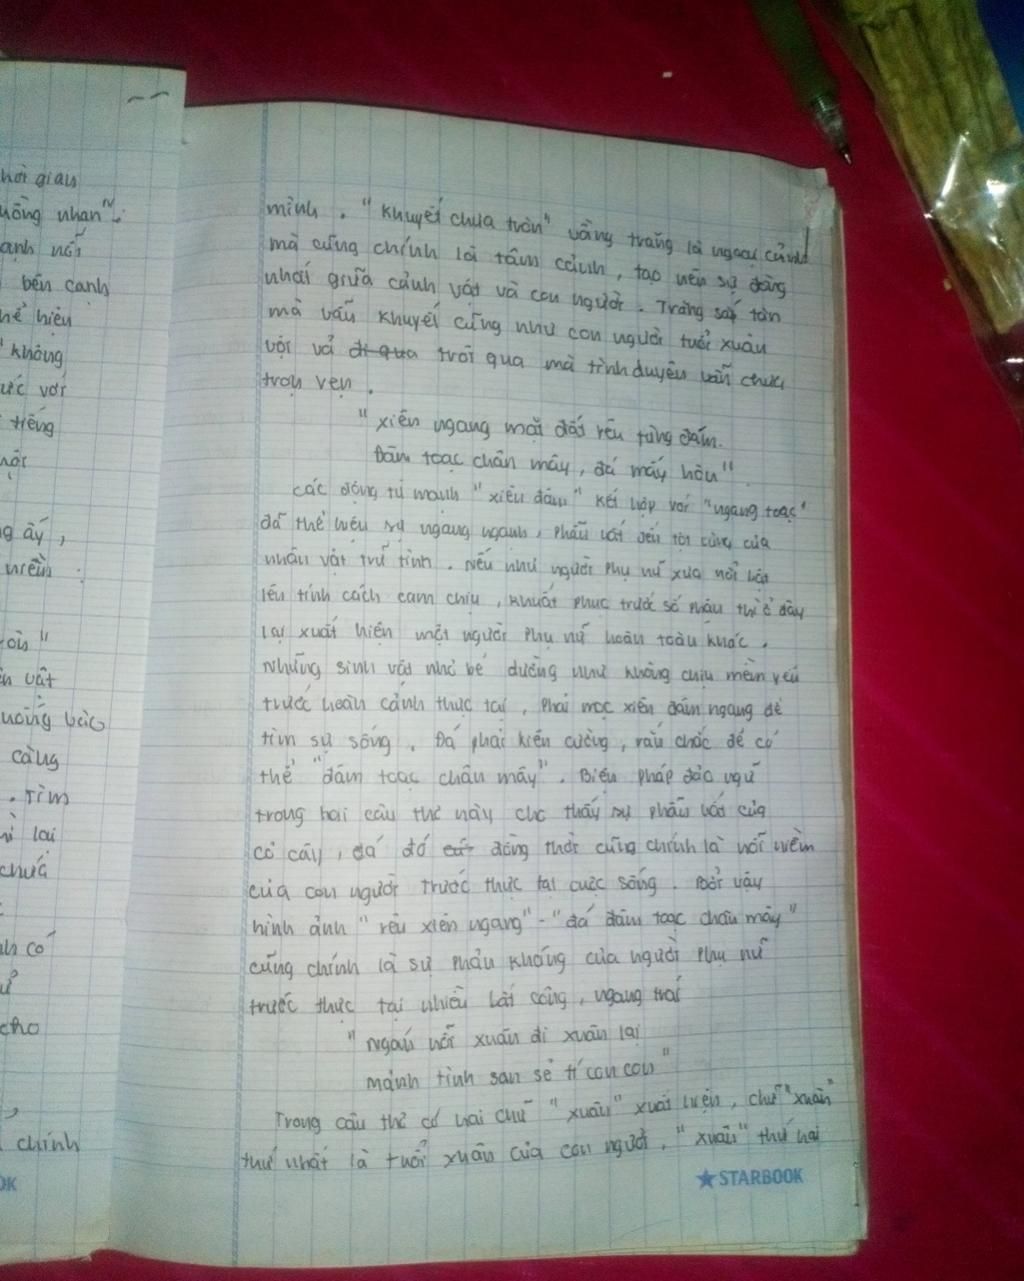 hời gian
bên cạnh
không
tiếng
g ấy,
càng
. Tìm
ì lại
chính
mình. "Khuyết chưa tròn" vầng trăng là ngoại cảnh
mà cũng chính là tâm cảnh, tạo nên sự đồng
nhất giữa cảnh vật và con người. Trăng sắp tàn
mà vẫn khuyết cũng như con người tuổi xuân
vội vả trôi qua mà tình duyên vẫn chưa
trọn vẹn.
"xiên ngang mặt đất rêu từng đám.
Đâm toạc chân mây, đá mấy hòn"
Các động từ mạnh "xiên đâm" kết hợp với "ngang toạc"
đã thể hiện sự ngang ngạnh, phẫn uất đến tột cùng của
nhân vật trữ tình. Nếu như người phụ nữ xưa nổi bật
lên tính cách cam chịu, khuất phục trước số phận thì ở đây
lại xuất hiện một người phụ nữ hoàn toàn khác.
Những sinh vật nhỏ bé dường như không chịu mềm yếu
trước hoàn cảnh thực tại, phải mọc xiên đâm ngang để
tìm sự sống. Đá phải kiên cường, rắn chắc để có
thể "đâm toạc chân mây". Biện pháp đảo ngữ
trong hai câu thơ này cho thấy sự phẫn uất của
cỏ cây, đá đó đồng thời cũng chính là nỗi niềm
của con người trước thực tại cuộc sống. Bởi vậy
hình ảnh "rêu xiên ngang" - "đá đâm toạc chân mây"
cũng chính là sự phản kháng của người phụ nữ
trước thực tại nhiều bất công, ngang trái
"Ngán nỗi xuân đi xuân lại lại
mảnh tình san sẻ tí con con"
Trong câu thơ có hai chữ "xuân" xuất hiện, chữ "xuân"
thứ nhất là tuổi xuân của con người, "xuân" thứ hai
STARBOOK